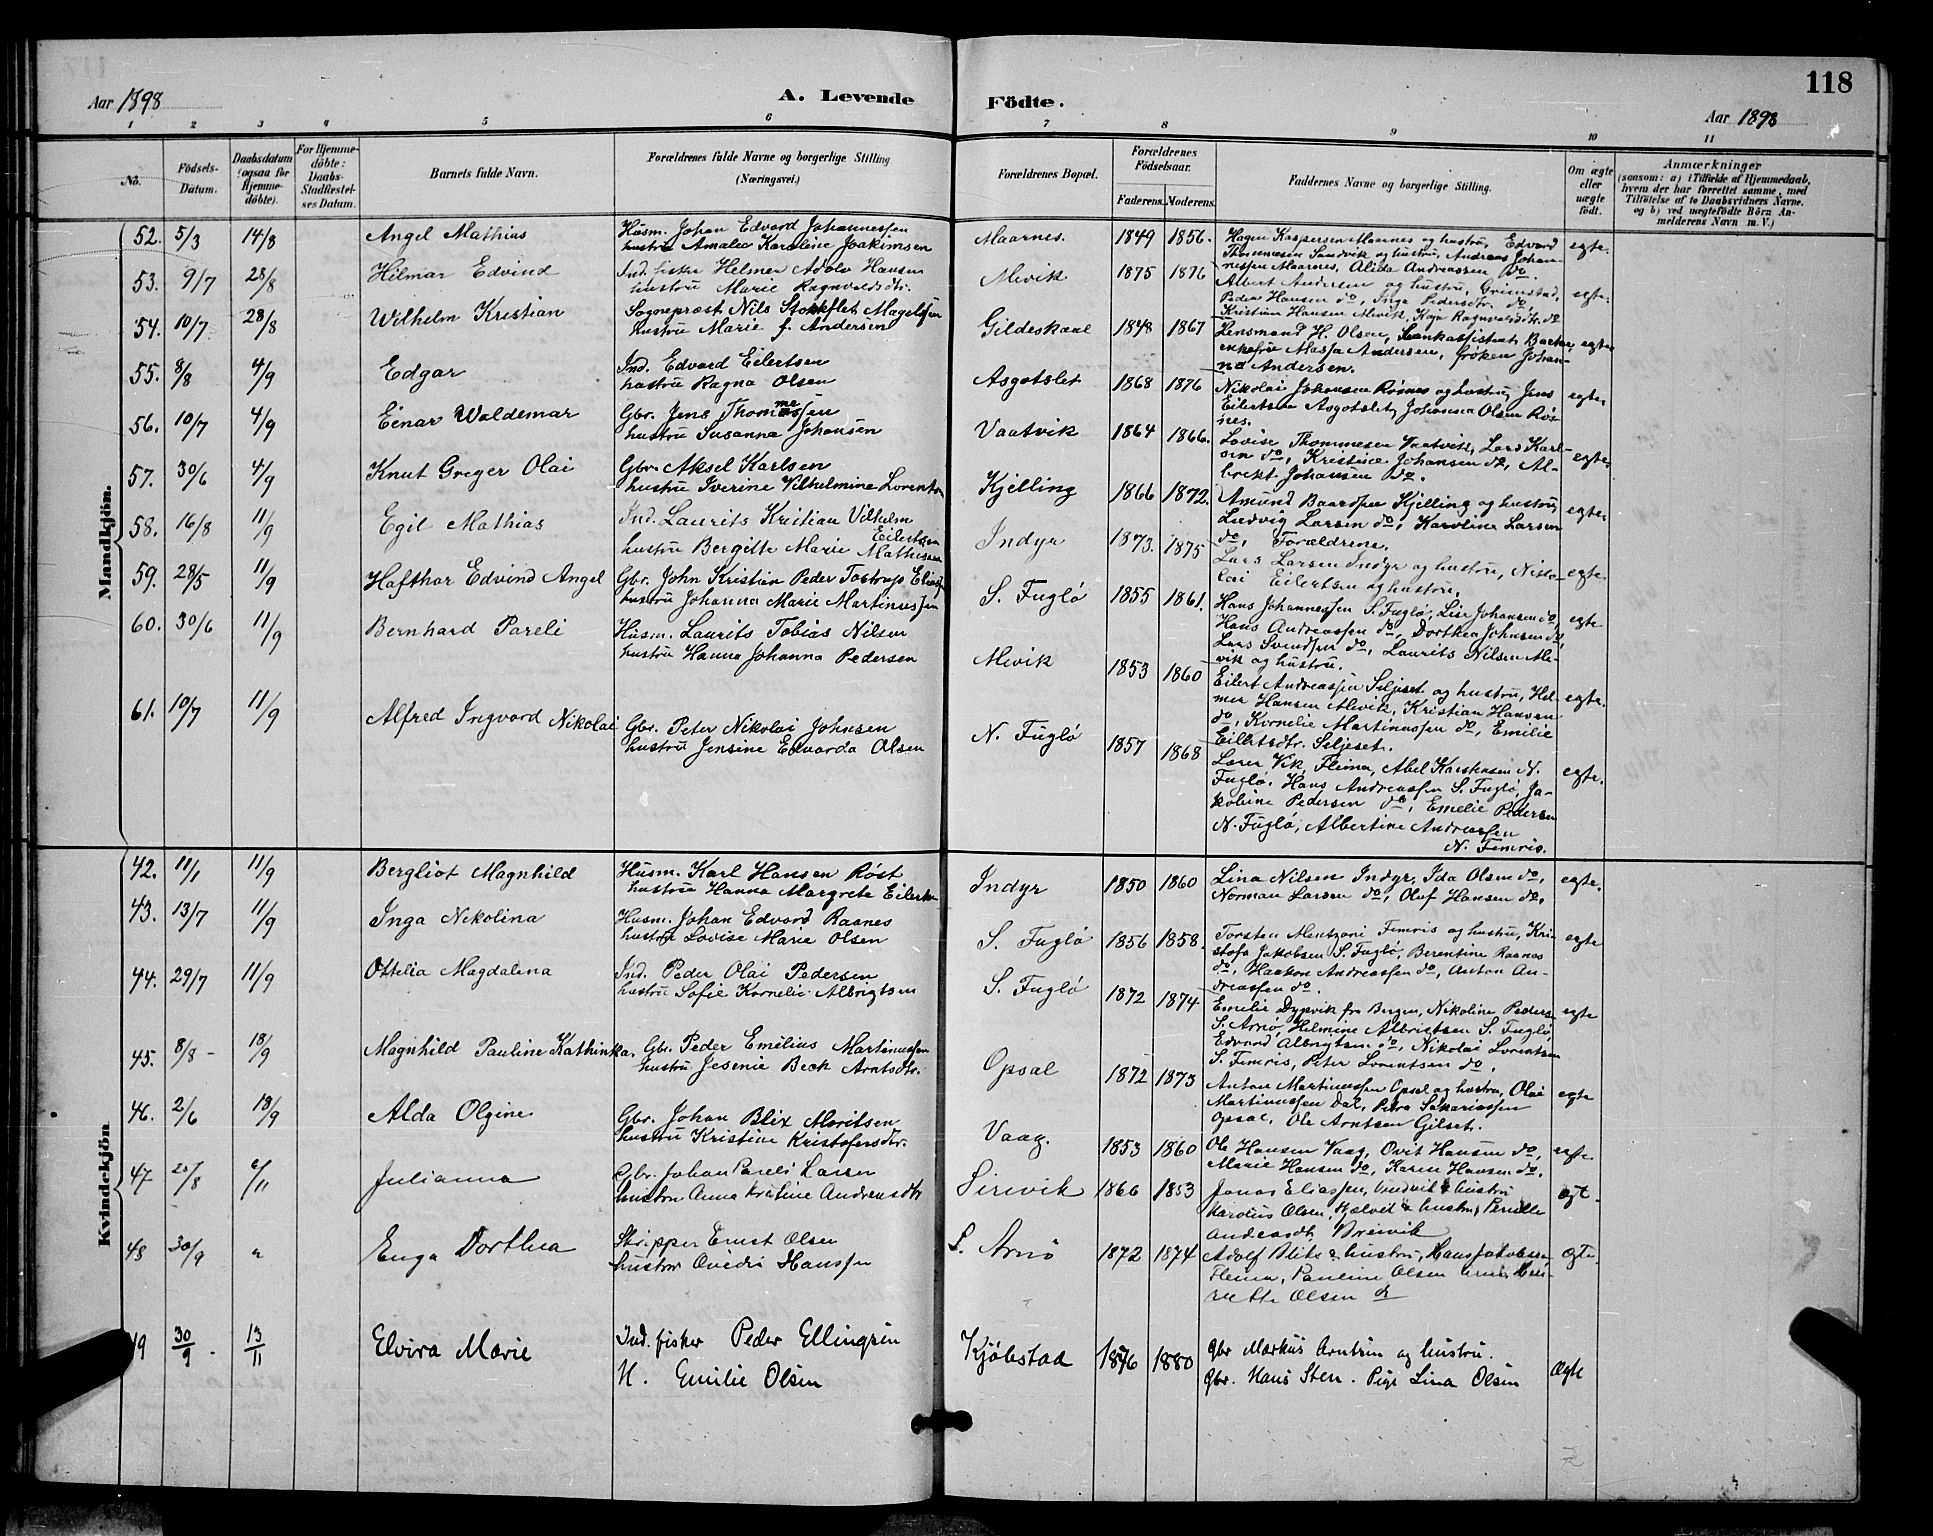 118
Aar 1898
A. Levende
Födte.
Aar 1898
1 2 3 4 5 6 7 8 9 10 11
No.
Födsels-Datum.
Daabsdatum (ogsaa for Hjemmedöbte).
For Hjemmedöbte: Daabs-Stadfæstelses Datum.
Barnets fulde Navn.
Forældrenes fulde Navne og borgerlige Stilling. (Næringsvei.)
Forældrenes Bopæl.
Forældrenes Födselsaar.
Faderens. Moderens.
Faddernes Navne og borgerlige Stilling.
Om ægte eller uægte födt.
Anmærkninger
(saasom: a) i Tilfælde af Hjemmedaab, hvem der har forrettet samme, med Tilföielse af to Daabsvidners Navne, og b) ved uægtefödte Börn Anmelderens Navn m. V.)
Mandkjön.
52. 5/3 14/8 Angel Mathias
Husm. Johan Edvard Johannessen
hustru Amalie Karoline Joakimsen
Maarnes. 1849 1856.
Hagen Kaspersen Maarnes og hustru, Edvard
Thommesen Sandvik og hustru, Andreas Johan-
nessen Maarnes, Alida Andreassen do.
egte.
53. 9/7 28/8 Hilmar Edvind
Ind. fisker Helmer Adolv Hansen
hustru Marie Ragnvaldsdtr.
Mevik 1875 1876
Albert Andersen og hustru, Grimstad,
Peder Hansen do, Inga Pedersdtr. do
Kristian Hansen Mevik, Kaja Ragnvaldsdtr. do
egte.
54. 10/7 28/8 Wilhelm Kristian
Sognepræst Nils Stokflet Magelssen
hustru Marie f. Andersen
Gildeskaal 1848 1867
Lensmand H. Olsen,
enkefrue Massa Andersen, frøken Johan-
na Andersen.
egte
55. 8/8 4/9 Edgar
Ind. Edvard Eilertsen
hustru Ragna Olsen
Asgotslet 1868 1876
Nikolai Johansen Røsnes og hustru, Jens
Eilertsen Asgotslet, Johanna Olsen Røs-
nes.
egte
56. 10/7 4/9 Einar Waldemar
Gbr. Jens Thommessen
hustru Susanna Johansen
Vaatvik 1864 1866.
Lovise Thommesen Vaatvik, Lars Karl-
sen do, Kristine Johansen do, Al-
brekt Johansen do.
egte
57. 30/6 4/9 Knut Greger Olai
Gbr. Aksel Karlsen
hustru Iverine Vilhelmine Lorentsen
Kjelling 1866 1872.
Amund Baardsen Kjelling og hustru,
Ludvig Larsen do, Karoline Larsen
do, Forældrene.
egte
58. 16/8 11/9 Egil Mathias
Ind. Laurits Kristian Vilhelm
Eilertsen
hustru Bergitte Marie Mathisen
Indyr 1873. 1875
Lars Larsen Indyr og hustru, Niko-
lai Eilertsen og hustru.
egte
59. 28/5 11/9 Hafthor Edvind Angel
Gbr. John Kristian Peder Tostrup Eliass
hustru Johanna Marie Martinussen
S. Fuglø 1855 1861.
Hans Johannessen S. Fuglø, Lise Johansen do,
Hans Andreassen do, Dorthea Johnsen do,
Lars Svendsen do, Laurits Nilsen Me-
vik og hustru.
egte
60. 30/6 11/9 Bernhard Pareli
Husm. Laurits Tobias Nilsen
hustru Hanna Johanna Pedersen
Mevik 1853 1860
Eilert Andreassen Seljeset og hustru, Hel-
mer Hansen Mevik, Kristian Hansen
do, Kornelie Martinussen do, Emilie
Eilertsdtr. Seljeset.
egte.
61. 10/7 11/9 Alfred Ingvard Nikolai
Gbr. Peter Nikolai Johnsen
hustru Jensine Edvarda Olsen
N. Fuglø 1857 1868
Lærer Vik, Fleina, Abel Karstensen N.
Fuglø, Hans Andreassen S. Fuglø, Ja-
kobine Pedersen do, Emelie Pedersen
N. Fuglø, Albertine Andreassen
N. Femris.
egte.
Kvindekjön
42. 11/1 11/9 Bergliot Magnhild
Husm. Karl Hansen Røst
hustru Hanna Margrete Eilertsen
Indyr 1850 1860
Lina Nilsen Indyr, Ida Olsen do,
Norman Larsen do, Oluf Hansen do,
egte.
43. 13/7 11/9 Inga Nikolina
Husm. Johan Edvard Raanes
hustru Lovise Marie Olsen
S. Fuglø 1856 1858.
Torsten Mentzoni Femris og hustru, Kri-
stofa Jakobsen S. Fuglø, Berentine Raanes
do, Haakon Andreassen do, Anton An-
dreassen do.
egte
44. 29/7 11/9 Ottelia Magdalena
Ind. Peder Olai Pedersen
hustru Sofie Kornelie Albrigtsen
S. Fuglø 1872 1874
Emelie Dypvik fra Bergen, Nikoline Peders.
S. Arnø, Helmine Albrigtsen S. Fuglø,
Edvard Albrigtsen do, Nikolai Lorentsen
S. Femris, Peter Lorentsen do.
egte
45. 8/8 - 18/9 Magnhild Pauline Kathinka.
Gbr. Peder Emelius Martinussen
hustru Jesenie Beck Arntsdtr.
Opsal 1872 1873
Anton Martinussen Opsal og hustru, Olai
Martinussen Dal, Petra Sakariassen
Opsal, Ole Arntsen Gilset.
egte
46. 2/6 18/9 Alda Olgine
Gbr. Johan Blix Moritsen
hustru Kristine Kristofersdtr.
Vaag. 1853 1860
Ole Hansen Vaag, Ovit Hansen do,
Marie Hansen do, Karen Hansen do.
egte
47 20/8 6/11 Julianna
Gbr. Johan Pareli Larsen
hustru Anna Kristine Andreasdtr
Sirevik 1866 1853
Jonas Eliassen, Vindvik & hustru
Karolius Olsen, Hjælvik & hustru, Pernille
Andreasdtr, Breivik
ægt.
48 30/9 " Enga Dorthea
Skipper Ernst Olsen
hustru Ovidia Hanssen
S. Arnø 1872 1874
Adolf Blix & hustru, Hans Jakobsen,
Fleina, Pauline Olsen Arnø, Hen-
riette Olsen do
ægte.
49 30/9 - 13/11 Elvira Marie
Ind. fisker Peder Ellingsen
H. Emilie Olsen
Kjøbstad 1876 1880
Gbr Markus Arntsen og hustru.
Gbr. Hans Sten. Pige Lina Olsen
Ægte